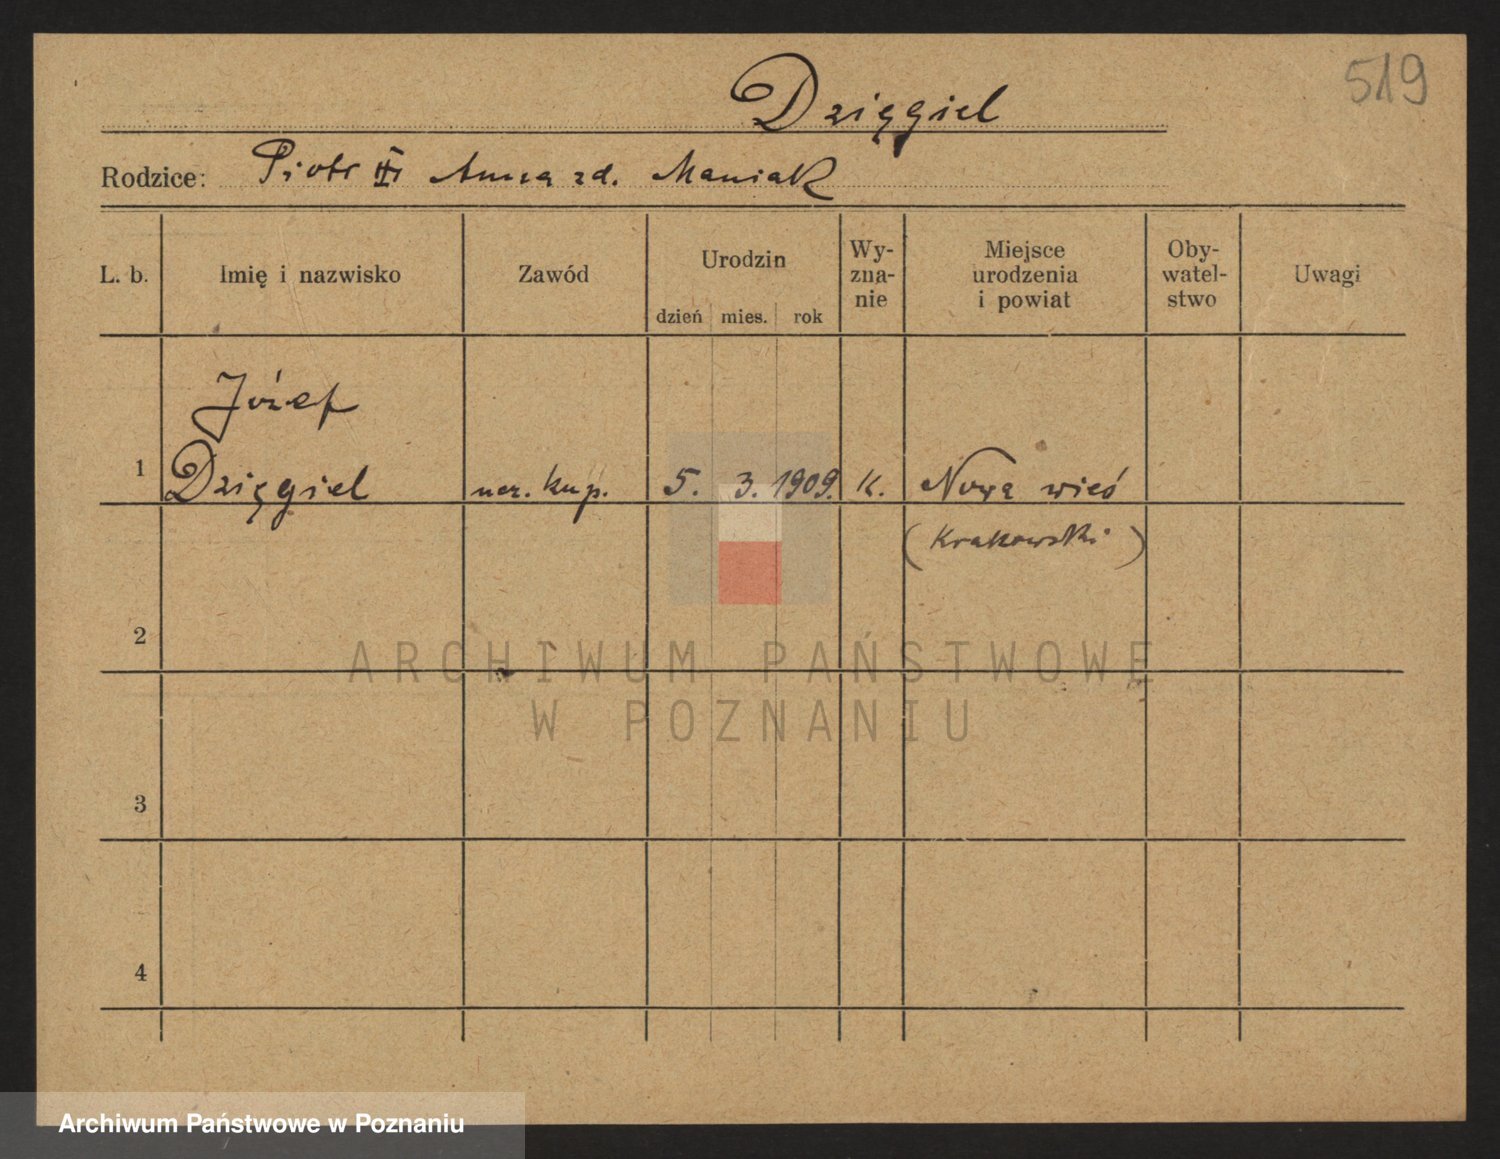 519
Dzięgiel
Rodzice: Piotr Anna zd. Maniak
L. b. Imię i nazwisko Zawód Urodzin dzień mies. rok Wy-zna-nie Miejsce urodzenia i powiat Oby-watel-stwo Uwagi
Józef
1 Dzięgiel ucz. kup. 5. 3. 1909. K. Nowa wieś
(Krakowski)
2
ARCHIWUM PAŃSTWOWE
W POZNANIU
3
4
Archiwum Państwowe w Poznaniu